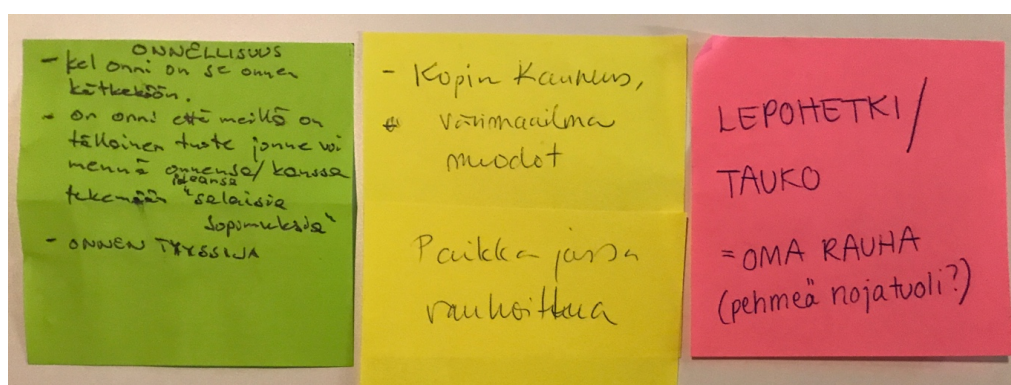 ONNELLISUUS
- kel onni on se onnen
kätkeköön.
- on onni että meillä on
tälloinen tuote jonne voi
mennä onnensa/kanssa
ideansa
tekemään "salaisia
sopimuksia"
- ONNEN TYYSSIJA
- Kopin kauneus,
värimaailma
muodot
Paikka jossa
rauhoittua
LEPOHETKI/
TAUKO
= OMA RAUHA
(pehmeä nojatuoli?)